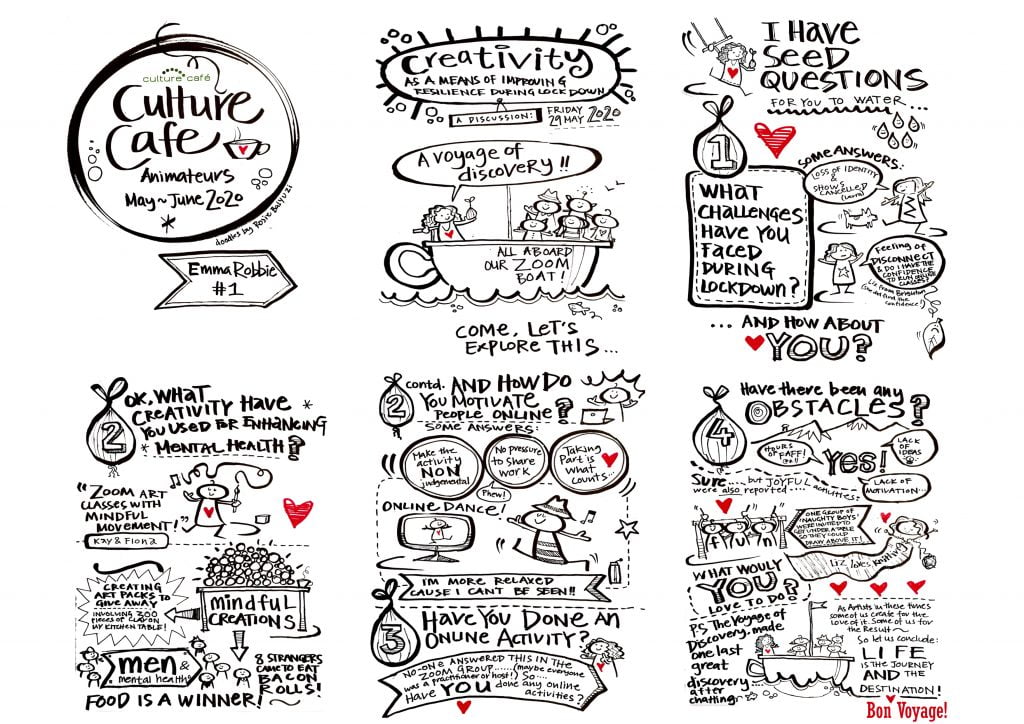 culture café
Culture
Cafe
Animateurs
May~June 2020
doodles by Rosie Balyuzi
Emma Robbie
#1
Creativity
AS A MEANS OF IMPROVING
RESILIENCE DURING LOCKDOWN
A DISCUSSION:
FRIDAY
29 MAY 2020
A voyage of
discovery!!
ALL ABOARD
OUR ZOOM
BOAT!
COME, LET'S
EXPLORE THIS...
I HAVE
SEED
QUESTIONS
FOR YOU TO WATER...
1
SOME ANSWERS:
WHAT
CHALLENGES
HAVE YOU
FACED
DURING
LOCKDOWN?
LOSS OF IDENTITY
&
SHOWS
CANCELLED
(Laura)
Feeling of
DISCONNECT
& DO I HAVE THE
CONFIDENCE
TO RUN ONLINE
CLASSES?
Liz from Brighton
(she did find the
confidence!)
... AND HOW ABOUT
YOU?
2
OK, WHAT
CREATIVITY HAVE
YOU USED FOR ENHANCING
* MENTAL HEALTH?
"ZOOM ART
CLASSES WITH
MINDFUL
MOVEMENT!"
KAY & FIONA
CREATING
ART PACKS TO
GIVE AWAY
INVOLVING 300
PIECES OF CLAY ON
MY KITCHEN TABLE!
mindful
CREATIONS
men &
mental health
8 STRANGERS
CAME TO EAT
BACON
ROLLS!
FOOD IS A WINNER!
2
contd. AND HOW DO
YOU MOTIVATE
PEOPLE ONLINE?
SOME ANSWERS:
Make the
activity
NON
judgemental
No pressure
to share
work
Phew!
Taking
Part is
what
counts...
ONLINE DANCE!
I'M MORE RELAXED
'CAUSE I CAN'T BE SEEN!!
3
HAVE YOU DONE AN
ONLINE ACTIVITY?
NO-ONE ANSWERED THIS IN THE
ZOOM GROUP......(maybe everyone
was a practitioner or host!) So....
Have YOU done any online
activities?
4
Have there been any
OBSTACLES?
HOURS
OF FAFF!
YES!
LACK
OF
IDEAS
LACK OF
MOTIVATION...
Sure.... but JOYFUL activities!
were also reported....
fun
ONE GROUP OF
'NAUGHTY BOYS'
WERE INVITED TO
GET UNDER A TABLE
SO THEY COULD
DRAW ABOVE IT!
LIZ loves knitting
WHAT WOULY
YOU?
LOVE TO DO?
PS. The Voyage of
Discovery, made
one last
great
discovery
after
chatting...
As Artists in these times
some of us create for the
love of it. Some of us for
the Result~
So let us conclude:
LIFE
IS THE JOURNEY
AND THE
DESTINATION!
Bon Voyage!